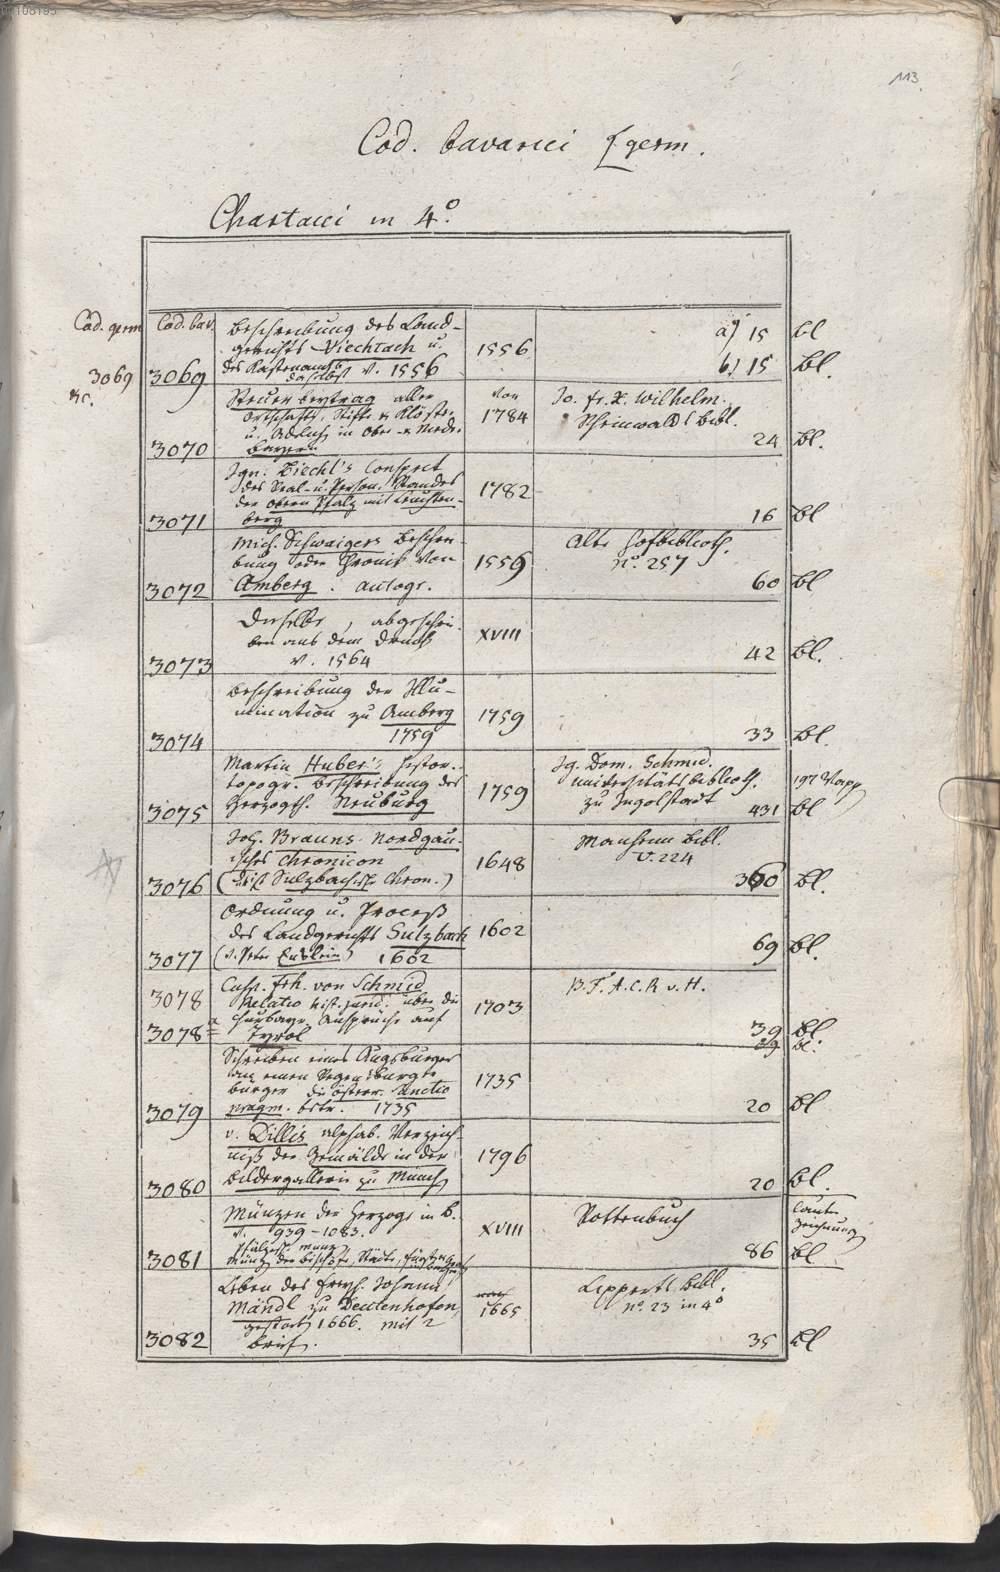 113.
Cod. bavarici s. germ.
Chartacei in 4º.
Cod. germ
3069
Cod. bav.
3069
Beschreibung des Land-
gerichts Viechtach u.
des Kastenamts
daselbst v. 1556
1556
a) 15 bl
b) 15 bl.
3070
Steuer beytrag aller
Ortschaft. Stifte u. Klöster
u. Adelich. in Ober- u. Nieder-
bayern.
von
1784
Jo. Fr. X. Wilhelm.
Scheinwaldl Bibl.
24 bl.
3071
Ign. Biechl's Conspect
des Real- u. Person. Standes
der obern Pfalz mit Leuchten-
berg
1782
16 bl
3072
Mich. Schwaigers Beschrei-
bung oder Chronik von
Amberg. autogr.
1559
Alte Hofbiblioth.
nº. 257
60 bl
3073
Dieselbe, abgeschrie-
ben aus dem Druck
v. 1564
XVIII
42 bl.
3074
Beschreibung der Illu-
mination zu Amberg
1759
1759
33 bl.
3075
Martin Huber's histor.
topogr. Beschreibung des
Herzogth. Neuburg
1759
Ig. Dom. Schmid.
Universitätsbiblioth.
zu Ingolstadt
197 Wapp
431 bl
3076
Joh. Brauns Nordgau-
isches Chronicon
(Sulzbachische Chron.)
1648
Manheim Bibl.
V. 224
360 bl.
3077
Ordnung u. Proceß
des Landgerichts Sulzbach
(v. Peter Enslein) 1602
1602
69 bl.
3078
3078 a
Casp. Frh. von Schmid
Relatio hist. jurid. über die
Churbayr. Ansprüche auf
Tyrol
1703
B. F. A. C. R. v. H.
39 bl
39 bl.
3079
Schreiben eines Augsburger
an einen Regensburger
bürger die österr. Sanctio
pragm. betr. 1735
1735
20 bl
3080
v. Dillis alphab. Verzeich-
niß der Gemälde in der
Bildergallerie zu Münch.
1796
20 bl.
3081
Münzen der Herzoge in B.
v. 939-1083.
Pfälzisch. Münz
Münz der Bischöfe, Städte,
XVIII
Rottenbuch
lauter
Zeichnungen
86 bl
3082
Leben des Freyh. Johann
Mändl zu Deutenhofen,
gestorb 1666. mit 2
Brief.
nach
1665
Lippertl. Bibl.
nº. 23 in 4º
35 bl